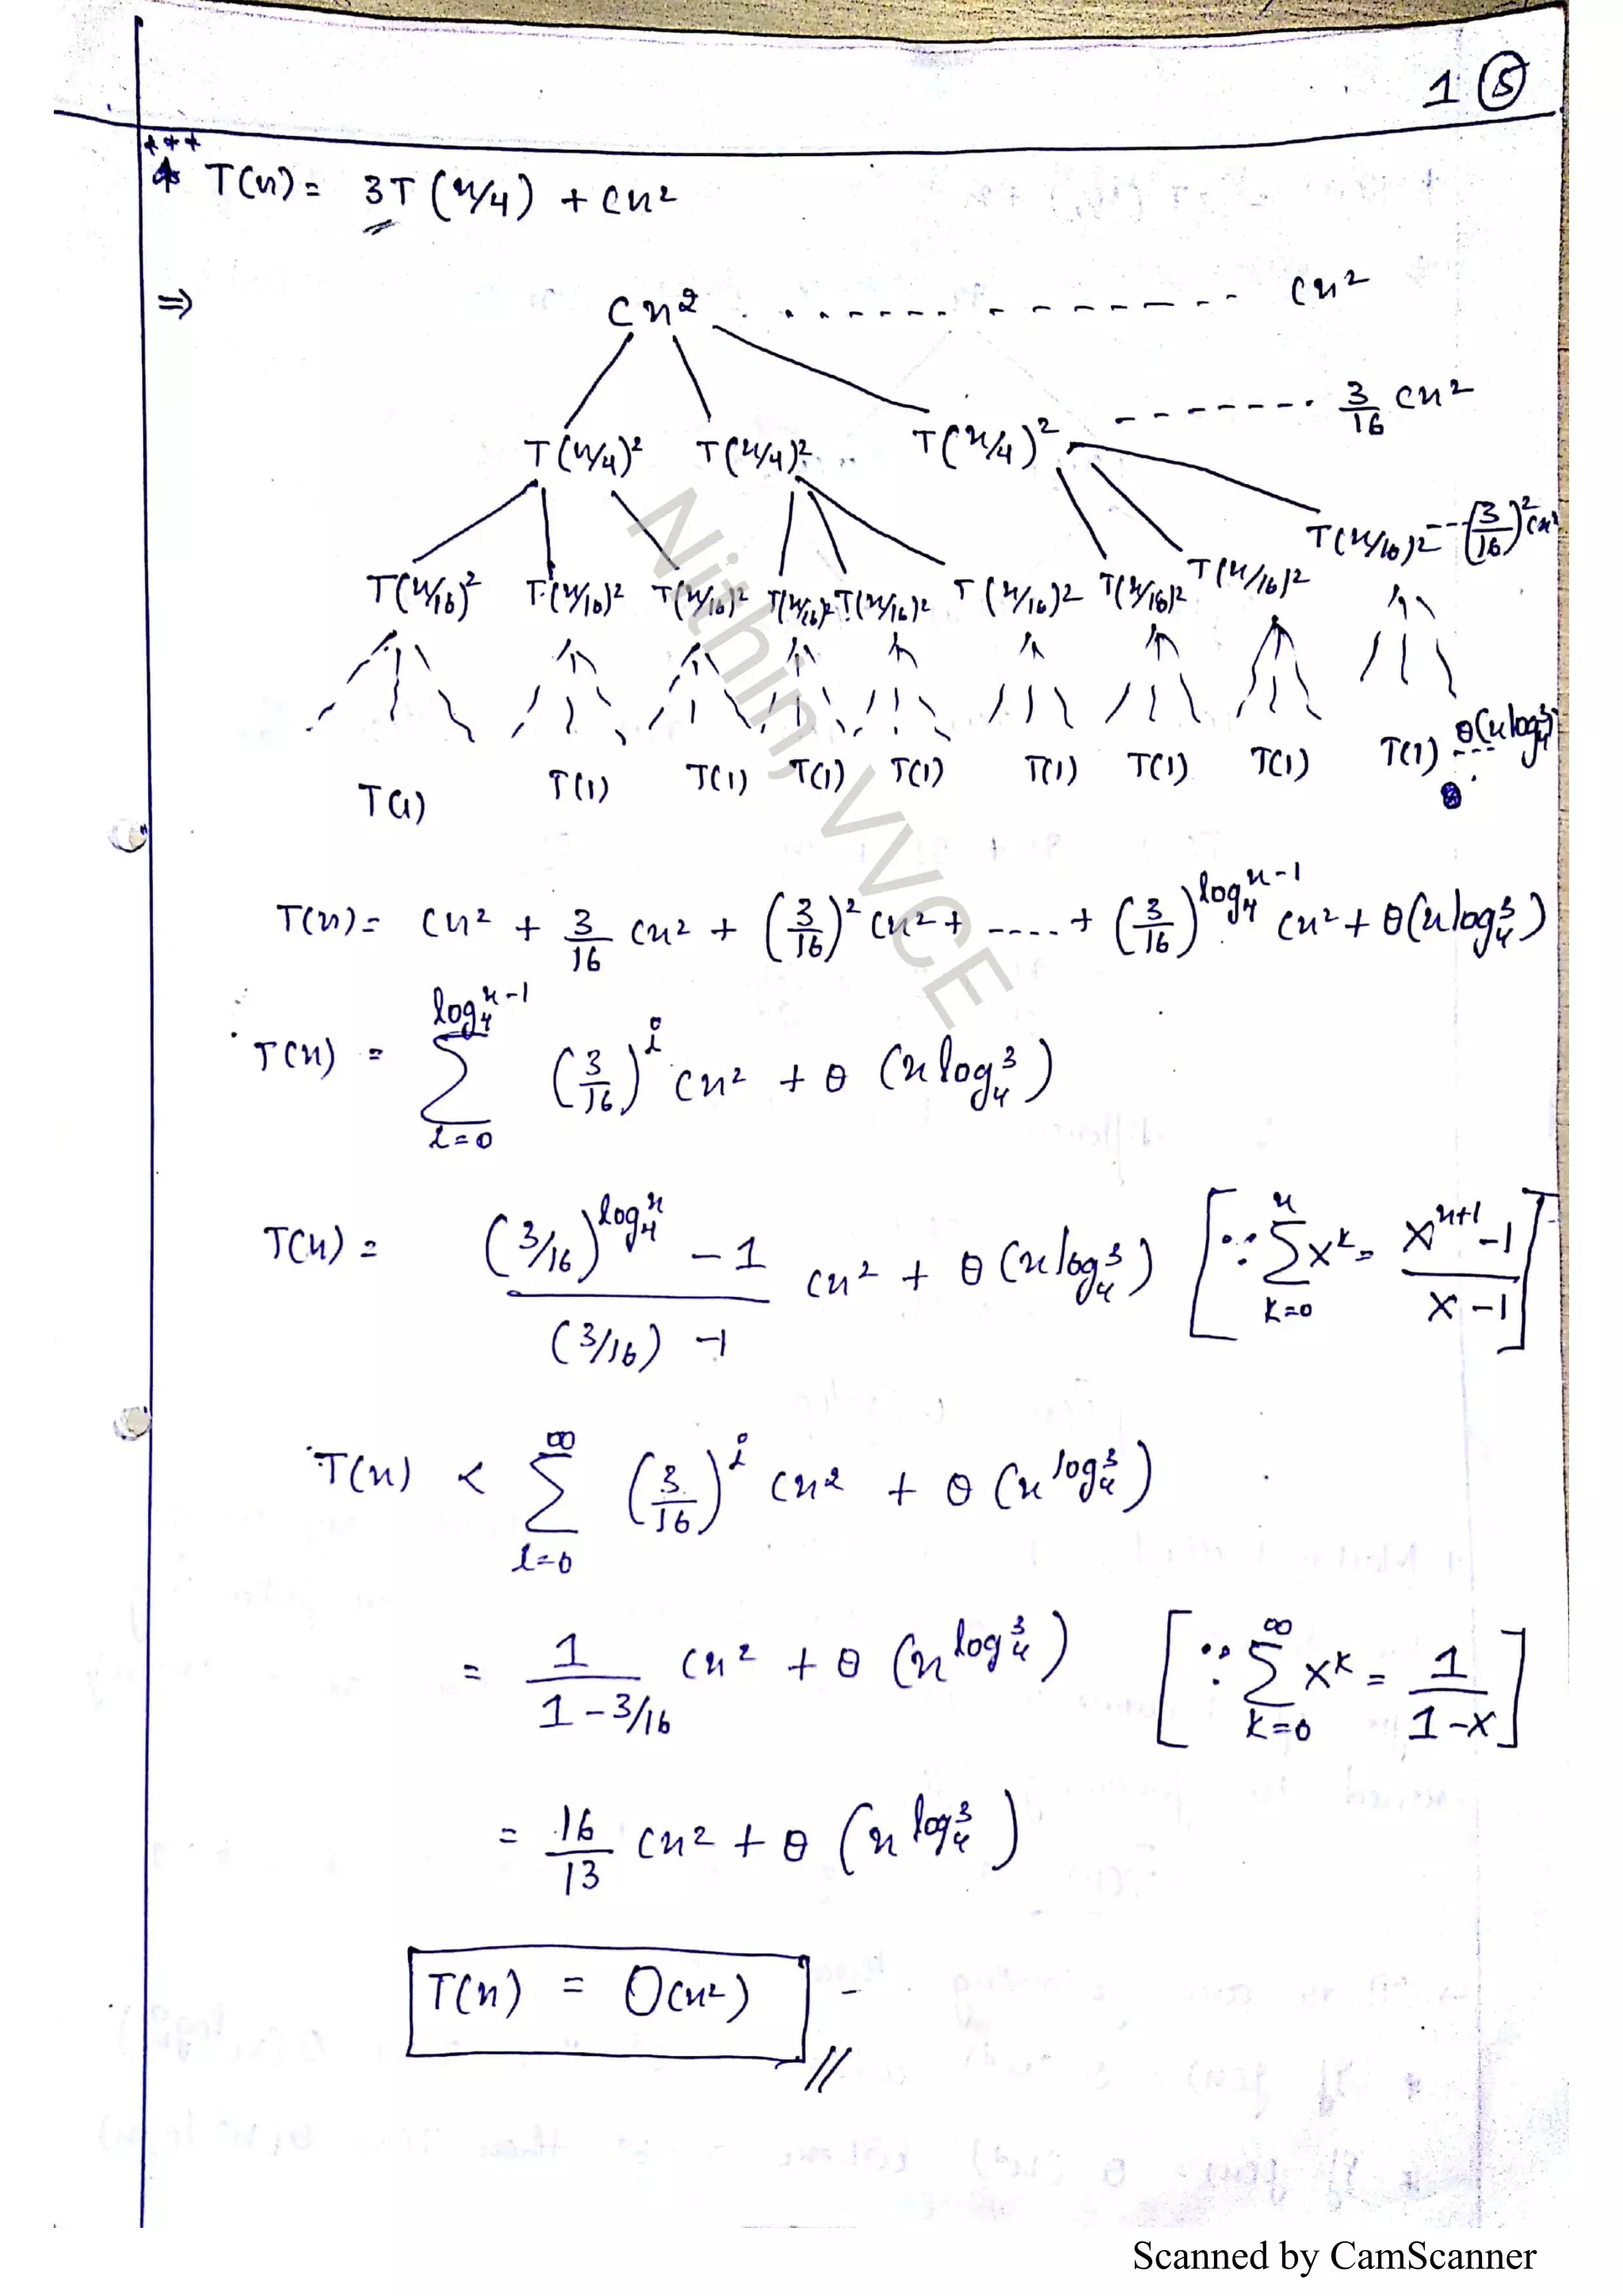 1 ⑤
*** T(n) = 3T(n/4) + cn²
⇒ cn² ............ cn²
T(n/4)² T(n/4)² T(n/4)² ------- 3/16 cn²
T(n/16)² T(n/16)² T(n/16)² T(n/16)² T(n/16)² T(n/16)² T(n/16)² T(n/16)² T(n/16)² --- (3/16)² cn²
T(1) T(1) T(1) T(1) T(1) T(1) T(1) T(1) T(1) ---- θ(n log₄³)
T(n) = cn² + 3/16 cn² + (3/16)² cn² + ---- + (3/16)^(log₄ⁿ⁻¹) cn² + θ(n log₄³)
T(n) = Σ_{i=0}^{log₄ⁿ⁻¹} (3/16)^i cn² + θ(n log₄³)
T(n) = ((3/16)^(log₄ⁿ) - 1)/((3/16) - 1) cn² + θ(n log₄³) [∵ Σ_{k=0}^{n} x^k = (x^(n+1) - 1)/(x - 1)]
T(n) < Σ_{i=0}^{∞} (3/16)^i cn² + θ(n^(log₄³))
= 1/(1 - 3/16) cn² + θ(n^(log₄³)) [∵ Σ_{k=0}^{∞} x^k = 1/(1-x)]
= 16/13 cn² + θ(n^(log₄³))
T(n) = O(n²)
Nithin, VVCE
Scanned by CamScanner